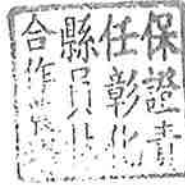 保證責
任彰化
縣員林
合作農